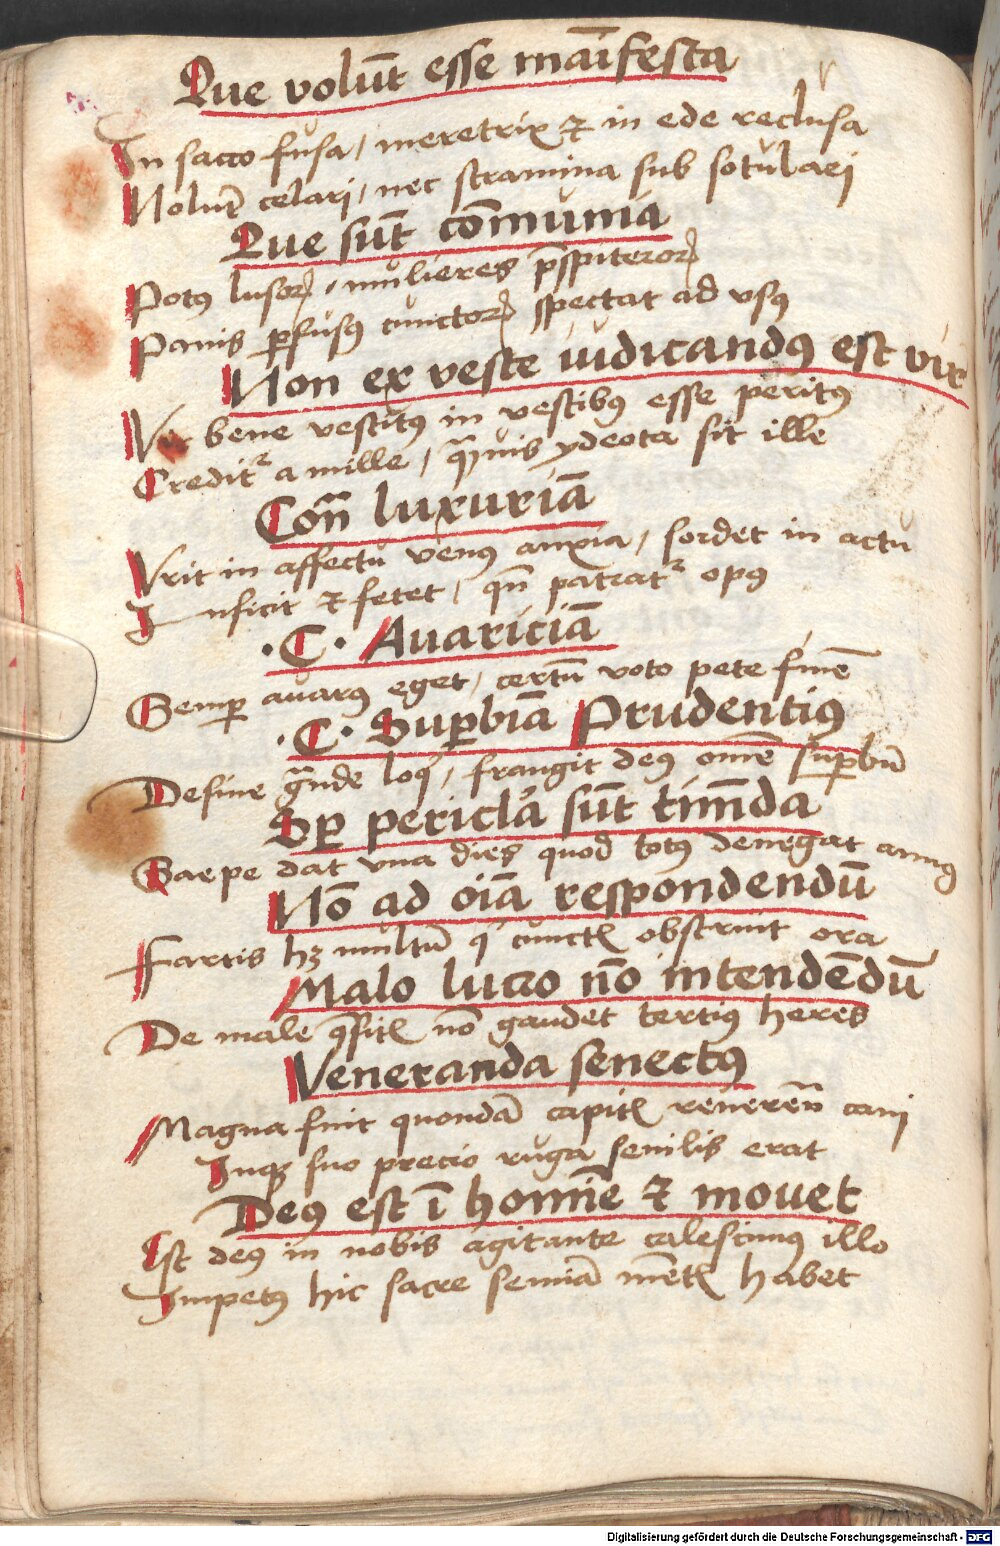 Que volūt esse maīfesta
In sacco fusa / meretrix et in ede reclusa
Nolūt celari / nec stramina sub sotulari
Que sūt cōmunia
Potꝰ lusoꝝ / mulieres p̄spiteroꝝ
Panis ꝑfusꝰ cunctoꝝ spectat ad vsꝰ
Non ex veste iudicandꝰ est vir
Vir bene vestitꝰ in vestibꝰ esse peritꝰ
Creditᷣ a mille / qᷓuis ydeota sit ille
Cont̄ luxuriā
Vrit in affectu venꝰ anxia / sordet in actu
Inficit et fetet / qn̄ patratᷣ opꝰ
·C· Auariciā
Semꝑ auarꝰ eget / certū voto pete finē
·C· Suꝑbiā Prudentiꝰ
Desine gᷓnde loqͥ / frangit deꝰ omē suꝑbū
Sꝑ pericla sūt timēda
Saepe dat vna dies quod totꝰ denegat annꝰ
Nō ad oīa respondendū
Fartis hꝫ multū qͥ cunctꝭ obstruit ora
Malo lucro nō intendēdū
De male qᷓsitꝭ nō gaudet tertiꝰ heres
Veneranda senectꝰ
Magna fuit quondā capitꝭ reuerēn cani
Inqꝫ suo precio ruga senilis erat
Deꝰ est ī homīe et mouet
Est deꝰ in nobis agitante calescimꝰ illo
Impetꝰ hic sacre semīa mētꝭ habet
Digitalisierung gefördert durch die Deutsche Forschungsgemeinschaft - DFG